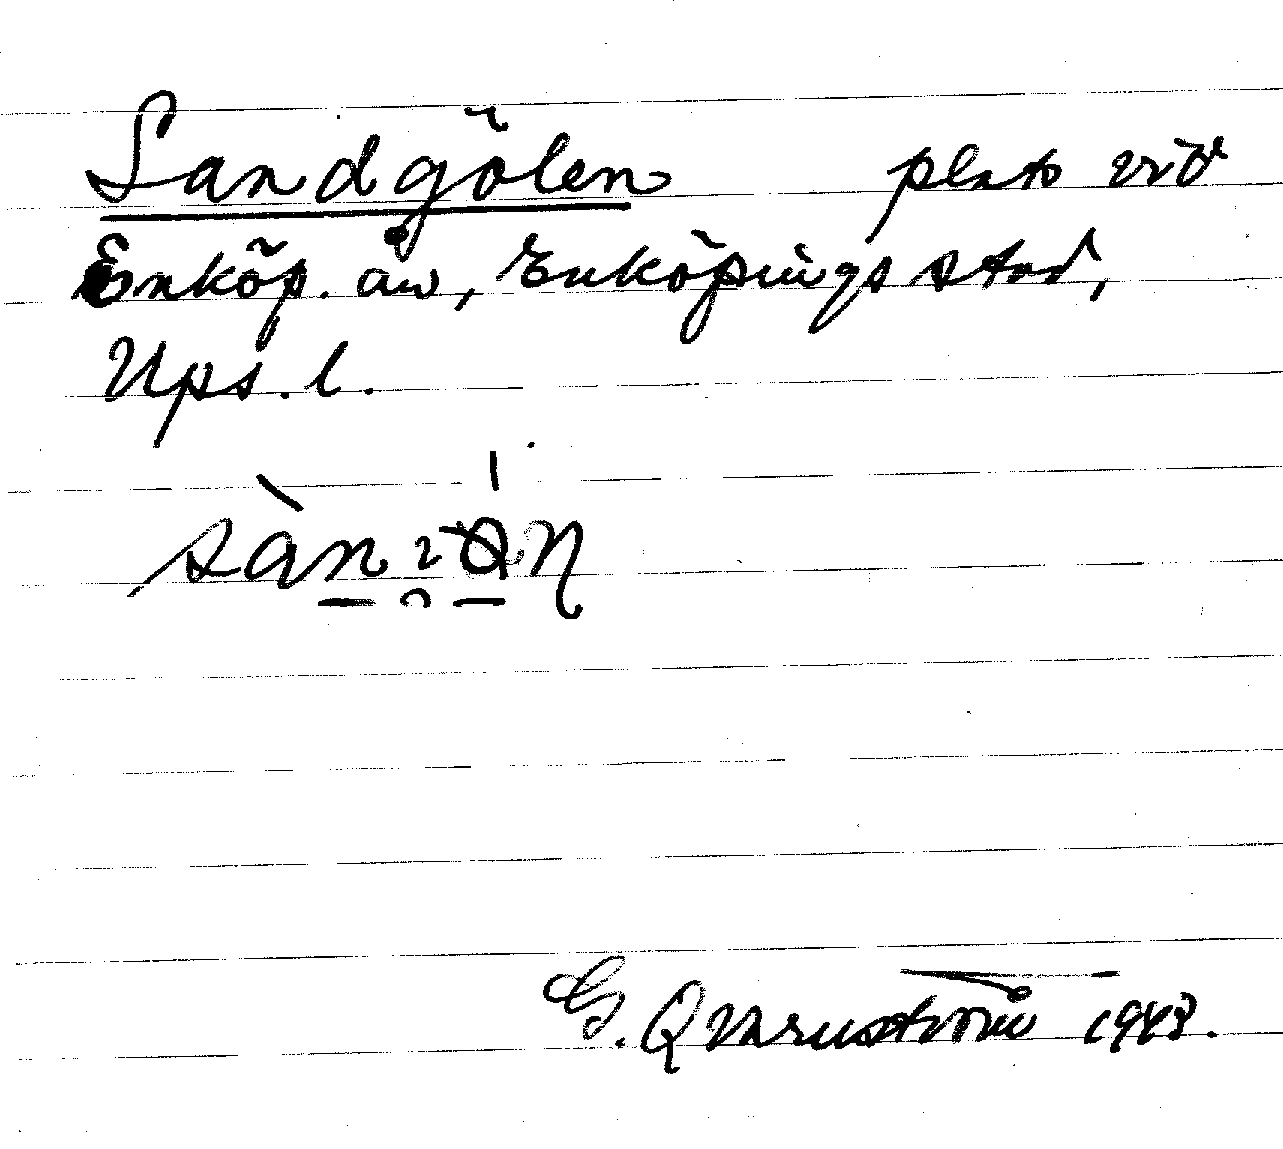 Sandgölen plats vid
Enköp. ån, Enköpings stad,
Ups. l.
G. Qvarnström 1948.